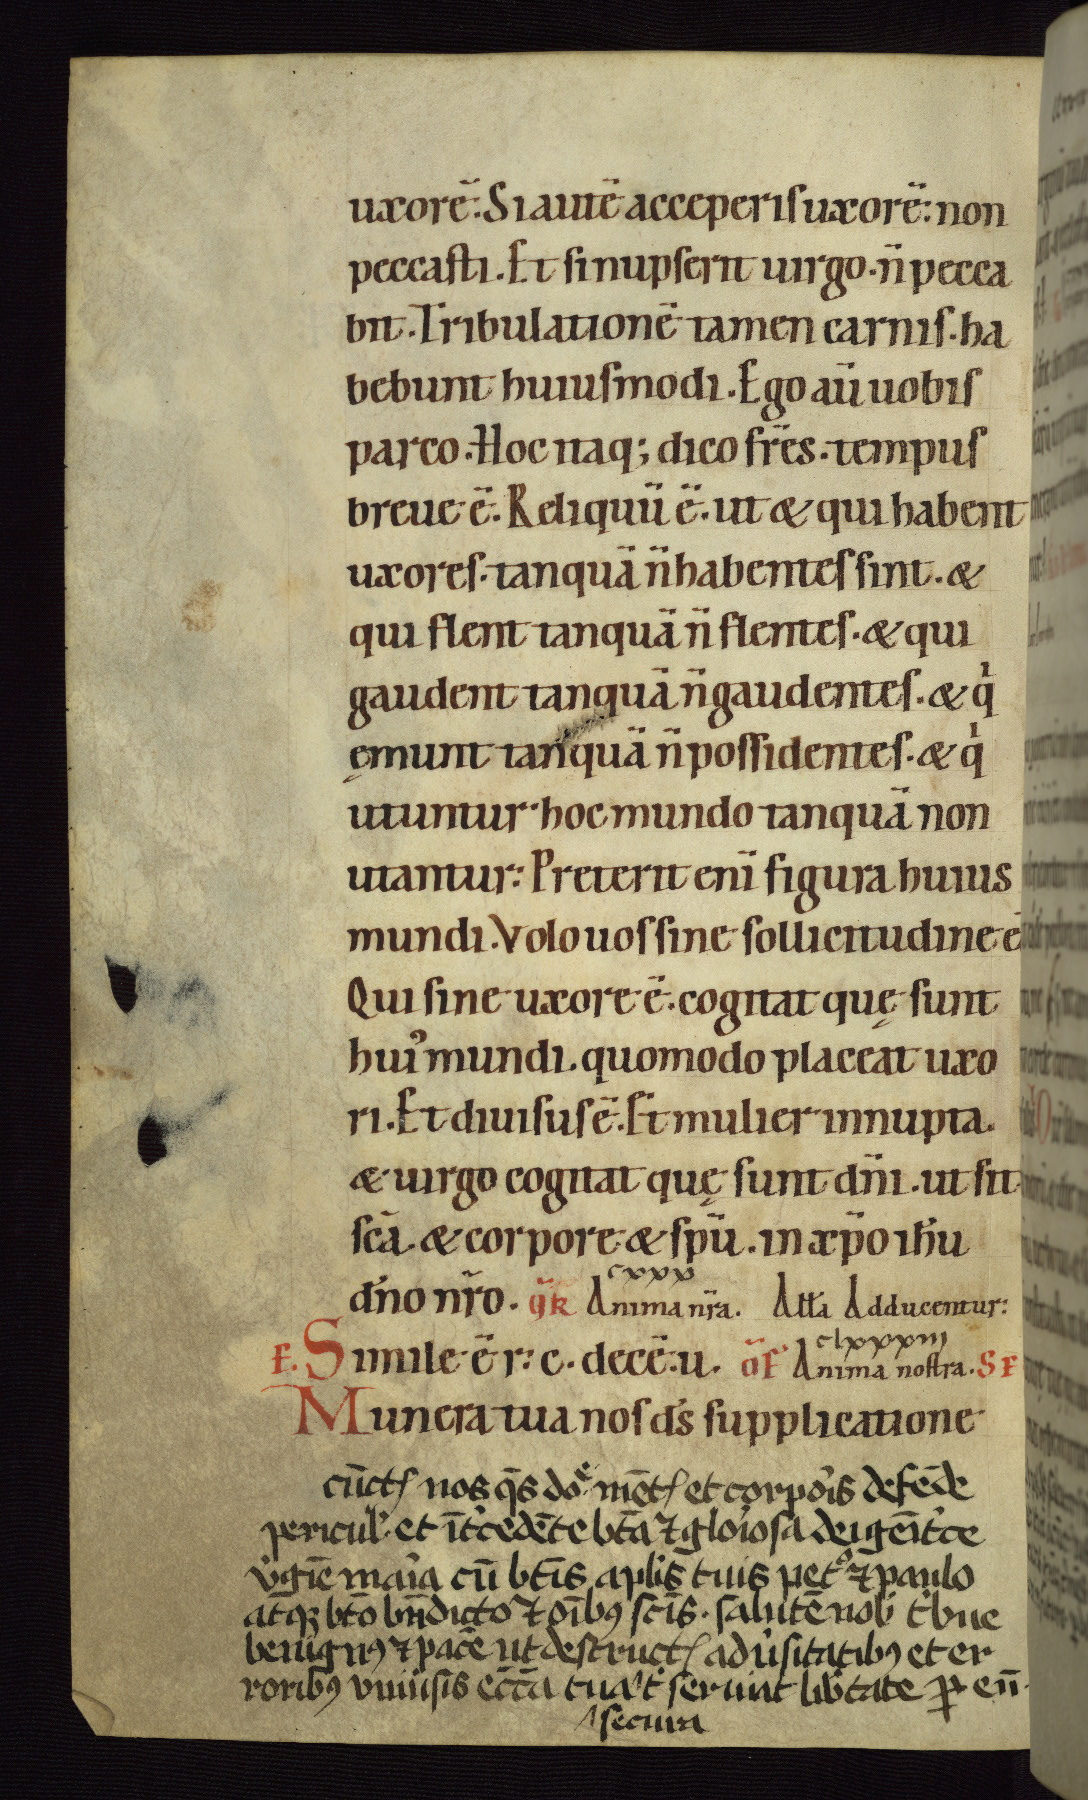 uxorē. Si autē acceperis uxorē: non
peccasti. Et si nupserit uirgo. n̄ pecca
bit. Tribulationē tamen carnis. ha
bebunt huiusmodi. Ego aū uobis
parco. Hoc itaq; dico fr̄es. tempus
breue ē. Reliquū ē. ut & qui habent
uxores. tanquā n̄ habentes sint. &
qui flent tanquā n̄ flentes. & qui
gaudent tanquā n̄ gaudentes. & q̇
ęmunt tanquā n̄ possidentes. & q̇
utuntur hoc mundo tanquā non
utantur: Preterit eni̅ figura huius
mundi. Volo uos sine sollicitudine e̅
Qui sine uxore ē. cogitat quę sunt
hui᾽ mundi. quomodo placeat uxo
ri. Et diuisus ē. Et mulier innupta.
& uirgo cogitat quę sunt dn̄i. ut sit
scā. & corpore & spū. in xp̄o ihu
dn̄o nr̄o. gr̄ Anima nr̄a. cxxx Att̄a Adducentur:
E. Simile ē r: c. decē: u. of̄ Anima nostra. clxxxiii S E
Munera tua nos ds̄ supplicatione
cūctꝭ nos qs̄ dōe mētꝭ et corpoīs defēde
pericul᾽ et īt᾽cedēte bt̄a ⁊ glo᾽iosa dei geīt᾽ce
v᾽gīe maīa cū bt̄is aplīs tuis pet᾽ ⁊ paulo
atꝗ bt̄o bn̄dicto ⁊ oīb9 sc̄is. salutē nob᾽ t᾽bue
benign9 ⁊ pacē ut destructꝭ adūsitatib9 et er
rorib9 vniūsis ecc̄ia tua ʌ t᾽ seruiat lib᾽tate ꝑ eū
ʌ secura